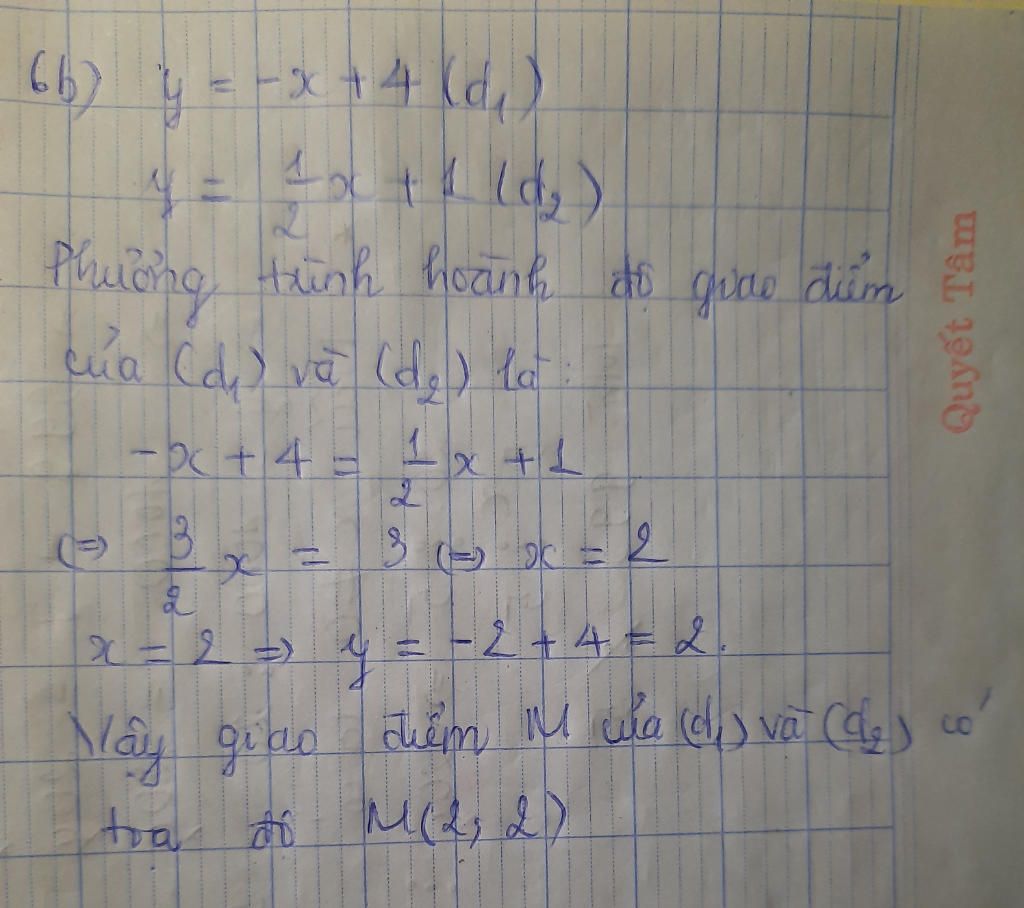 6b) y = -x + 4 (d₁)
y = 1/2 x + 1 (d₂)
Phương trình hoành độ giao điểm
của (d₁) và (d₂) là:
-x + 4 = 1/2 x + 1
(=) 3/2 x = 3 (=) x = 2
x = 2 => y = -2 + 4 = 2.
Vậy giao điểm M của (d₁) và (d₂) có
toạ độ M(2; 2)
Quyết Tâm